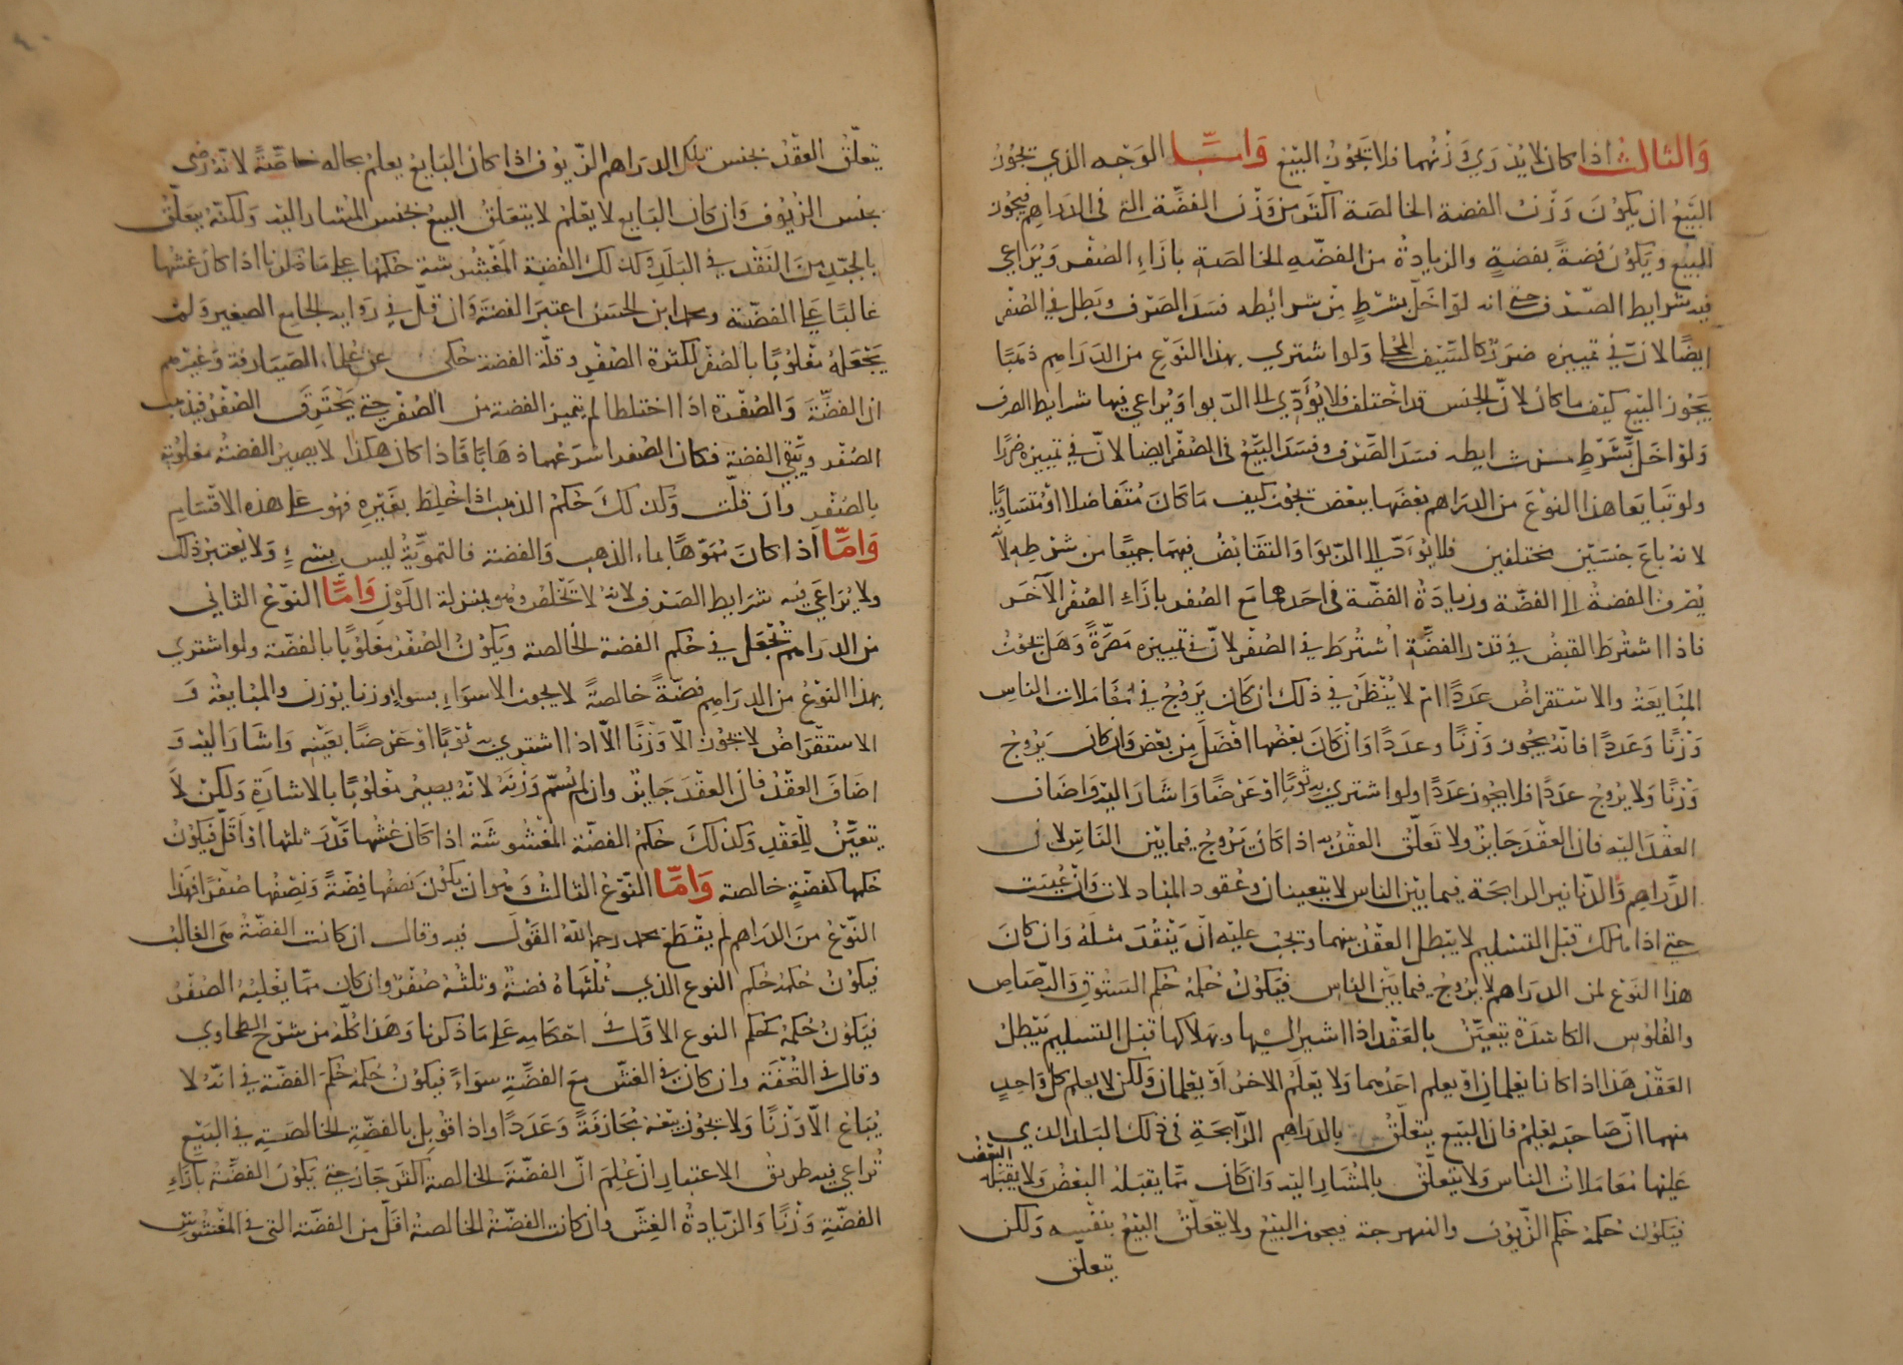 والثالث اذا كان لا يدري وزنهما فلا يجوز البيع واما الوجه الذي يجوز
البيع ان يكون وزن الفضة الخالصة اكثر من وزن الفضة التي في الدراهم فيجوز
البيع ويكون فضة بفضة والزيادة من الفضة الخالصة بازاء الصفر ويراعي
فيه شرايط الصرف حتى انه لو اخل بشرط من شرائطه فسد الصرف وبطل في الصفر
ايضا لان في تمييزه ضرر كالسيف المحلا ولو اشتري بهذا النوع من الدراهم ذهبا
يجوز البيع كيف ما كان لان الجنس قد اختلف فلا يؤدي الى الربوا ويراعي فيها شرايط الصرف
ولو اخل بشرط من شرايطه فسد الصرف وفسد البيع في الصفر ايضا لان في تمييزه ضررا
ولو تبايعا هذا النوع من الدراهم بعضها ببعض يجوز كيف ما كان متفاضلا او متساويا
لانه باع جنسين مختلفين فلا يؤدي الى الربوا والتقابض فيهما جميعا من شرطه لا
يصرف الفضة الى الفضة وزيادة الفضة في احدهما مع الصفر بازاء الصفر الآخر
فاذا اشترط القبض في قدر الفضة اشترط في الصفر لان في تمييزه مضرة وهل تجوز
المبايعة والاستقراض عددا ام لا ينظر في ذلك ان كان يروج في معاملات الناس
وزنا وعددا فانه يجوز وزنا وعددا وان كان بعضها افضل من بعض وان كان يروج
وزنا ولا يروج عددا فلا يجوز عددا ولو اشتري به ثوبا او عرضا واشار اليه واضاف
العقد اليه فان العقد جايز ولا تعلق العقد به اذا كان يروج فيما بين الناس لان
الدراهم والدنانير الرايجة فيما بين الناس لا يتعينان وعقود المبادلات وان عينت
حتى اذا هلك قبل التسليم لا يبطل العقد بينهما ويجب عليه ان ينقد مثله وان كان
هذا النوع من الدراهم لا يروج فيما بين الناس فيكون حكمه حكم الستوق والرصاص
والفلوس الكاسدة يتعين بالعقد اذا اشير اليها وبهلاكها قبل التسليم يبطل
العقد هذا اذا كانا يعلمان او يعلم احدهما ولا يعلم الاخر او يعلمان ولكن لا يعلم كل واحد
منهما ان صاحبه يعلم فان البيع يتعلق بالدراهم الرايجة في ذلك البلد الذي
عليها معاملات الناس ولا يتعلق بالمشار اليه وان كان مما يقبله البعض ولا يقبله البعض
فيكون حكمه حكم الزيوف والنبهرجة فيجوز البيع ولا يتعلق البيع بنفسه ولكن
يتعلق
يتعلق العقد بجنس تلك الدراهم الزيوف اذا كان البايع يعلم بحاله خاصة لانه رضى
بجنس الزيوف وان كان البايع لا يعلم لا يتعلق البيع بجنس المشار اليه ولكنه يتعلق
بالجيد من النقد في البلد وكذلك الفضة المغشوشة حكمها على ما ذكرنا اذا كان غشها
غالبا على الفضة ومحمد ابن الحسن اعتبر الفضة وان قل في رواية الجامع الصغير ولم
يجعله مغلوبا بالصفر لكثرة الصفر وقلة الفضة حكى عن علماء الصيارفة وغيرهم
ان الفضة والصفر اذا اختلطا لم يتميز الفضة من الصفر حتى يحترق الصفر فيذهب
الصفر ويبقى الفضة فكان الصفر اسرعهما ذهابا فاذا كان هكذا لا يصير الفضة مغلوبة
بالصفر وان قلت وكذلك حكم الذهب اذا خلط بغيره فهو على هذه الاقسام
واما اذا كان مموها بماء الذهب والفضة فالتموية ليس بشيء ولا يعتبر ذلك
ولا يراعي فيه شرايط الصرف لانه لا تخلص وهو بمنزلة اللون واما النوع الثاني
من الدراهم تجعل في حكم الفضة الخالصة ويكون الصفر مغلوبا بالفضة ولو اشتري
بهذا النوع من الدراهم فضة خالصة لا يجوز الا سواء بسواء وزنا بوزن والمبايعة و
الاستقراض لا يجوز الا وزنا الا اذا اشتري به ثوبا او عرضا بعينه واشار اليه و
اضاف العقد فان العقد جايز وان لم يسم وزنه لانه يصير مغلوبا بالاشارة ولكن لا
يتعين للعقد وكذلك حكم الفضة المغشوشة اذا كان غشها قدر ثلثها او اقل فيكون
حكمها كفضة خالصة واما النوع الثالث وهو ان يكون نصفها فضة ونصفها صفرا فهذا
النوع من الدراهم لم يقطع محمد رحمه الله القول فيه وقال ان كانت الفضة هي الغالب
فيكون حكمه حكم النوع الذي ثلثاه فضة وثلثه صفر وان كان مما يغلبه الصفر
فيكون حكمه كحكم النوع الاول في احكامه على ما ذكرنا وهذا كله من شرح الطحاوي
وقال في التحفة وان كان في الغش مع الفضة سواء فيكون حكمه حكم الفضة في انه لا
يباع الا وزنا ولا يجوز بيعه مجازفة وعددا واذا قوبل بالفضة الخالصة في البيع
يراعي فيه طريق الاعتبار ان علم ان الفضة الخالصة اكثر جاز حتى يكون الفضة بازاء
الفضة وزنا والزيادة الغش وان كانت الفضة الخالصة اقل من الفضة التي في المغشوش